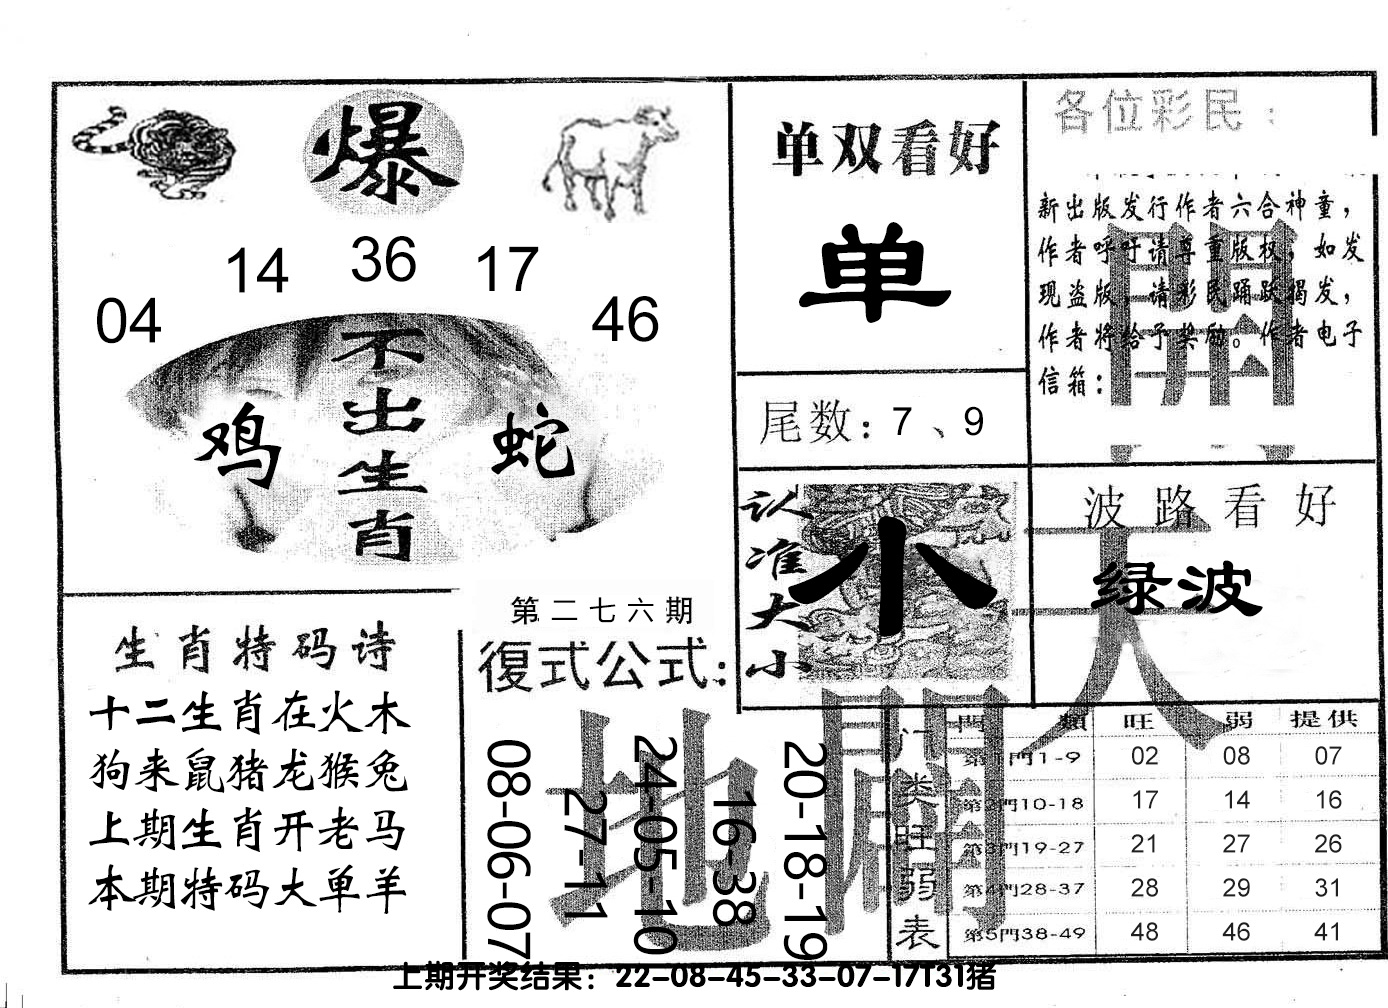 爆
04 14 36 17 46
不出生肖
鸡 蛇
单双看好
单
尾数：7、9
各位彩民：
新出版发行作者六合神童，
作者呼吁请尊重版权，如发
现盗版，请彩民踊跃揭发，
作者将给予奖励。作者电子
信箱：
開
认准大小
小
波路看好
绿波
天
生肖特码诗
十二生肖在火木
狗来鼠猪龙猴兔
上期生肖开老马
本期特码大单羊
第二七六期
復式公式：
08-06-07
27-11
24-05-10
16-38
20-18-19
地
門类旺弱表
門類 旺 弱 提供
第1門1-9 02 08 07
第2門10-18 17 14 16
第3門19-27 21 27 26
第4門28-37 28 29 31
第5門38-49 48 46 41
上期开奖结果：22-08-45-33-07-17T31猪